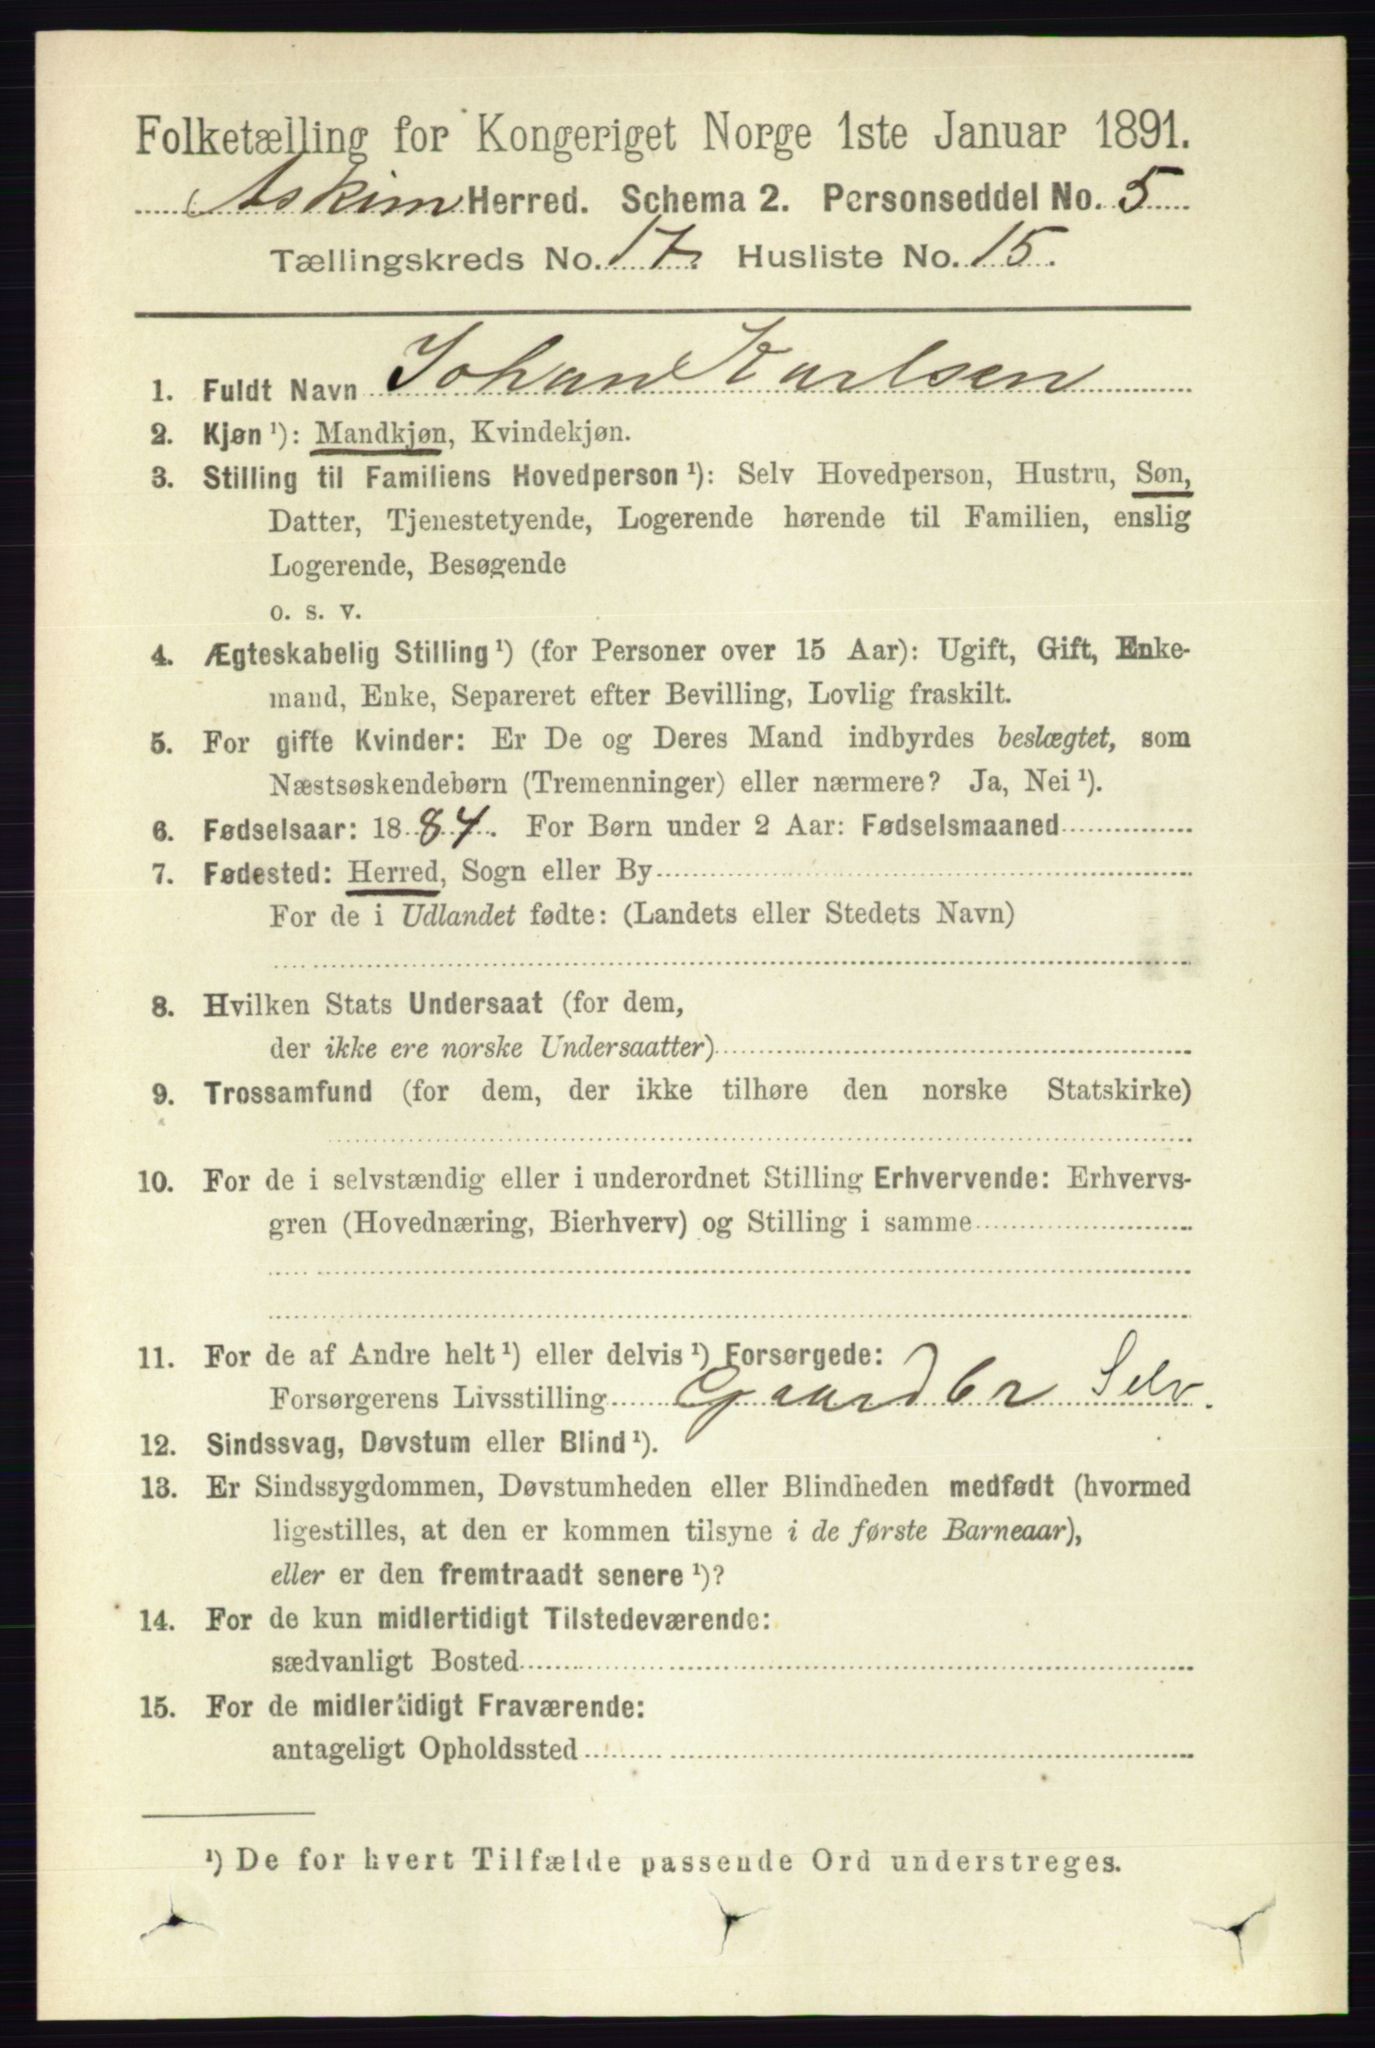 Folketælling for Kongeriget Norge 1ste Januar 1891.
Askim Herred. Schema 2. Personseddel No. 5
Tællingskreds No. 17. Husliste No. 15.
1. Fuldt Navn Johan Karlsen
2. Kjøn ¹): Mandkjøn, Kvindekjøn.
3. Stilling til Familiens Hovedperson ¹): Selv Hovedperson, Hustru, Søn,
Datter, Tjenestetyende, Logerende hørende til Familien, enslig
Logerende, Besøgende
o. s. v.
4. Ægteskabelig Stilling ¹) (for Personer over 15 Aar): Ugift, Gift, Enke-
mand, Enke, Separeret efter Bevilling, Lovlig fraskilt.
5. For gifte Kvinder: Er De og Deres Mand indbyrdes beslægtet, som
Næstsøskendebørn (Tremenninger) eller nærmere? Ja, Nei ¹).
6. Fødselsaar: 1884. For Børn under 2 Aar: Fødselsmaaned
7. Fødested: Herred, Sogn eller By
For de i Udlandet fødte: (Landets eller Stedets Navn)
8. Hvilken Stats Undersaat (for dem,
der ikke ere norske Undersaatter)
9. Trossamfund (for dem, der ikke tilhøre den norske Statskirke)
10. For de i selvstændig eller i underordnet Stilling Erhvervende: Erhvervs-
gren (Hovednæring, Bierhverv) og Stilling i samme
11. For de af Andre helt ¹) eller delvis ¹) Forsørgede:
Forsørgerens Livsstilling Gaardbr Selv.
12. Sindssvag, Døvstum eller Blind ¹).
13. Er Sindssygdommen, Døvstumheden eller Blindheden medfødt (hvormed
ligestilles, at den er kommen tilsyne i de første Barneaar),
eller er den fremtraadt senere ¹)?
14. For de kun midlertidigt Tilstedeværende:
sædvanligt Bosted
15. For de midlertidigt Fraværende:
antageligt Opholdssted
¹) De for hvert Tilfælde passende Ord understreges.